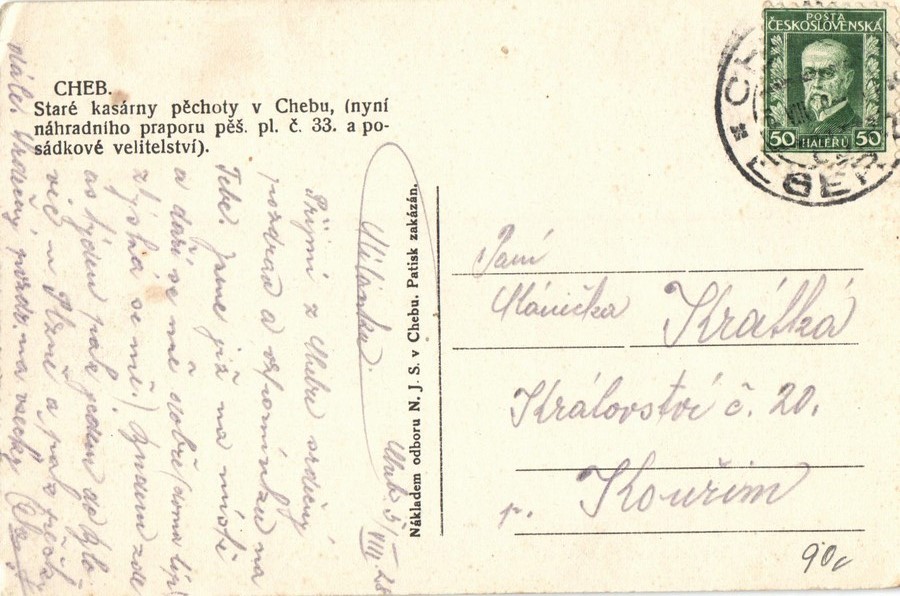 CHEB.
Staré kasárny pěchoty v Chebu, (nyní
náhradního praporu pěš. pl. č. 33. a po-
sádkové velitelství).
POŠTA
ČESKOSLOVENSKÁ
50 HALÉŘŮ 50
EGER
Nákladem odboru N. J. S. v Chebu. Patisk zakázán.
Cheb 5/VIII 28
Přijmi z Chebu srdečný
pozdrav a vzpomínku na
Tebe. Jsme již na místě
a daří se mě dobře (doma líp
se mě.) Budem zde
as týden pak jedem do
Plzně a pak pěšky
dále. Srdečný pozdr. na všecky
Paní
Mánička Krátká
Království č. 20.
p. Kouřim
90,-